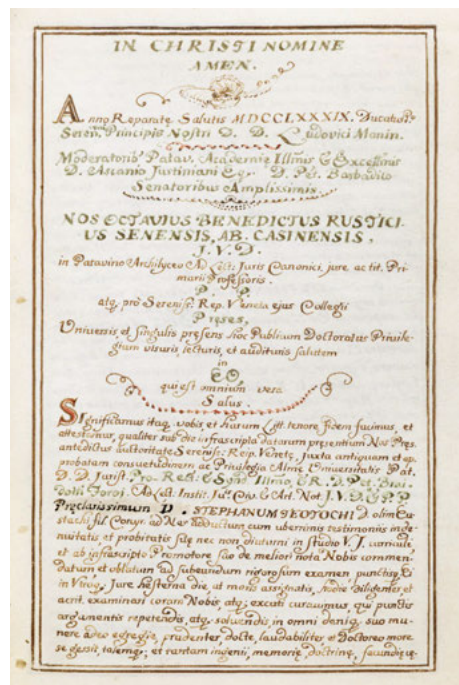 IN CHRISTI NOMINE
AMEN.
Anno Reparatę Salutis MDCCLXXXIX. Ducatus
Seren. Principis Nostri D. D. Ludovici Manin.
Moderatorib9 Patav. Academię Illmis & Excellmis
D. Ascanio Justiniani Eq. D. Pet. Barbadico
Senatoribus Amplissimis.
NOS OCTAVIUS BENEDICTUS RUSTICI-
US SENENSIS, AB. CASINENSIS,
J. V. D.
in Patavino Archilyceo Ad Lect. Juris Canonici, jure ac tit. Pri-
marii Professoris.
P. P.
atq; pro Sereniss. Rep. Veneta ejus Collegii
Pręses,
Universis, et singulis pręsens hoc Publicum Doctoratus Privile-
gium visuris, lecturis, et audituris salutem
in
EO
qui est omnium vera
Salus.
Significamus itaq; vobis, et harum Litt. tenore fidem facimus, et
attestamur, qualiter sub die infrascripta datarum pręsentium Nos Pręs.
antedictus auctoritate Sereniss. Reip. Venetę, juxta antiquam et ap-
probatam consuetudinem ac Privilegia Almę Universitatis Pat.
D. D. Jurist. Pro-Rect. & Synd. Illmo, & R. D. Pet.
Ad Lect. Instit. Jur. Civ. & Art. Not. J. V. D. & P. P.
Pręclarissimum D. STEPHANUM THEOTOCHI D. olim Eu-
stachii fil. Corcyr. ad Nos adductum cum uberrimis testimoniis inge-
nuitatis et probitatis suę nec non diuturni in studio V. J. curricule,
et ab infrascripto Promotore suo de meliori nota Nobis commen-
datum et oblatum ad subeundum rigorosum examen punctis, Ei
in Utroq; Jure hesterna die, ut moris assignatis, hodie diligenter et
acrit. examinari coram Nobis, atq; excuti curavimus, qui punctis
argumentis repetendis, atq; solvendis in omni deniq; suo mu-
nere adeo egregie, prudenter, docte, laudabiliter et Doctoreo more
se gessit, talemq; et tantam ingenii, memorię, doctrinę, facundięq;